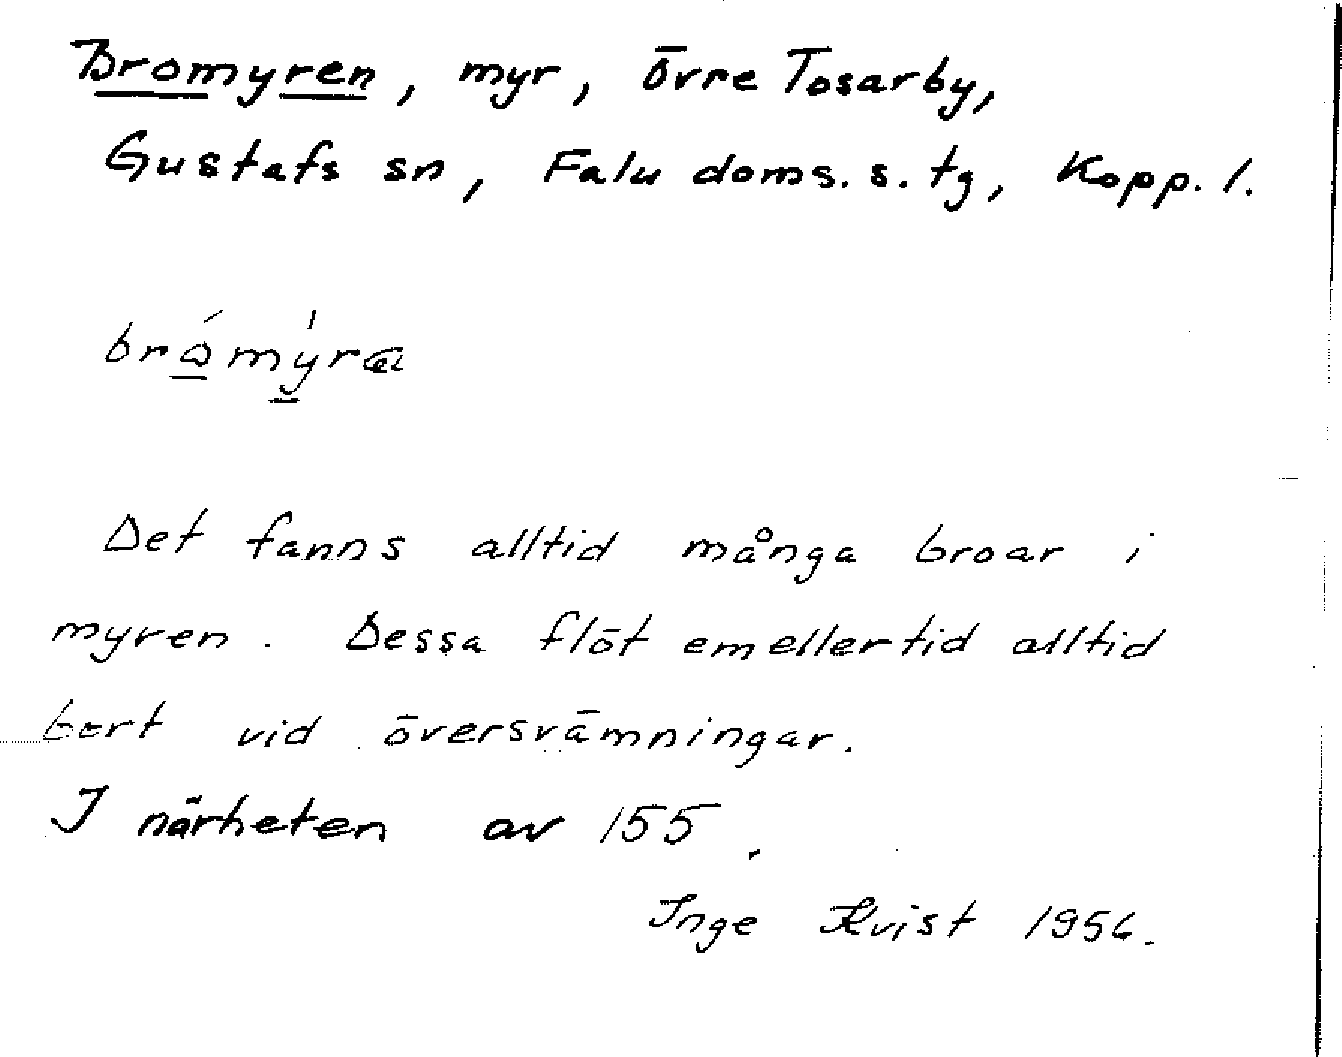 Bromyren, myr, Övre Tosarby,
Gustafs sn, Falu doms. s. tg, Kopp. l.
bròmỳra
Det fanns alltid många broar i
myren. Dessa flöt emellertid alltid
bort vid översvämningar.
I närheten av 155.
Inge Kvist 1956.